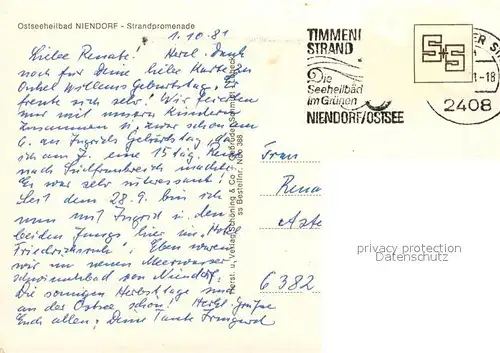 Ostseeheilbad NIENDORF - Strandpromenade
1.10.81
Liebe Renate! Herzl. Dank
noch für Deine liebe Karte zu
Onkel Willems Geburtstag,
freute sich sehr! Wir feierten
nur mit unsern Kindern
zusammen u. zwar schon am
6. zu Ingrids Geburtstag, da
ich am 7. eine 15 täg. Reise
nach Südfrankreich machte.
Es war sehr interessant!
Seit dem 28.9. bin ich
nun mit Ingrid u. den
beiden Jungs hier im "Hotel
Friedrichsruh". Eben waren
wir im neuen Meerwasser
schwimmbad von Niendorf.
Die sonnigen Herbsttage sind
an der Ostsee schön! Herzl. Grüße
Euch allen, Deine Tante Irmgard
Verlag Schöning & Co + Gebrüder Schmidt, Lübeck
Bestellnr. Ndo 388
TIMMEN
STRAND
Die
Seeheilbäd
im Grünen
NIENDORF/OSTSEE
S+S
-18
2408
Frau
Rena
6382
privacy protection
Datenschutz